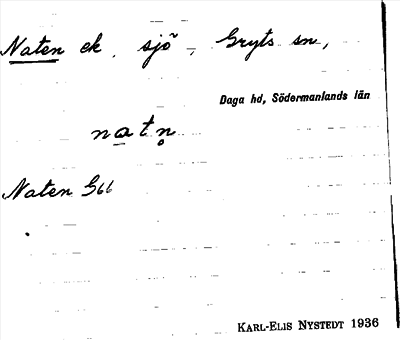 Naten ek. sjö, Gryts sn,
Daga hd, Södermanlands län
natn̥
Naten Gbl
KARL-ELIS NYSTEDT 1936